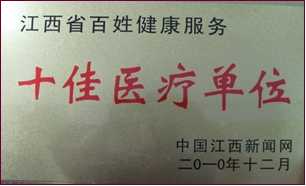 江西省百姓健康服务
十佳医疗单位
中国江西新闻网
二0一0年十二月